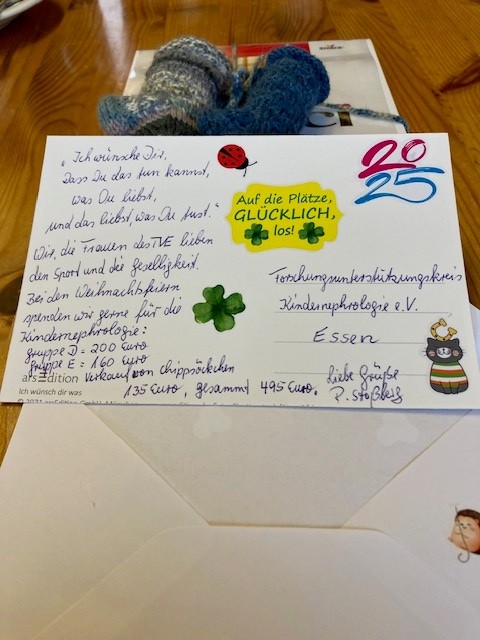 „Ich wünsche Dir,
Dass Du das tun kannst,
was Du liebst,
und das liebst, was Du tust."
Wir, die Frauen des TVE lieben
den Sport und die Geselligkeit.
Bei den Weihnachtsfeiern
spenden wir gerne für die
Kindernephrologie:
Gruppe D = 200 Euro
Gruppe E = 160 Euro
Verkauf von Chippsöckchen
135 Euro, gesammt 495 Euro.
arsEdition
Ich wünsch dir was
Auf die Plätze,
GLÜCKLICH,
los!
2025
Forschungsunterstützungskreis
Kindernephrologie e.V.
Essen
Liebe Grüße
P. Stoßberg